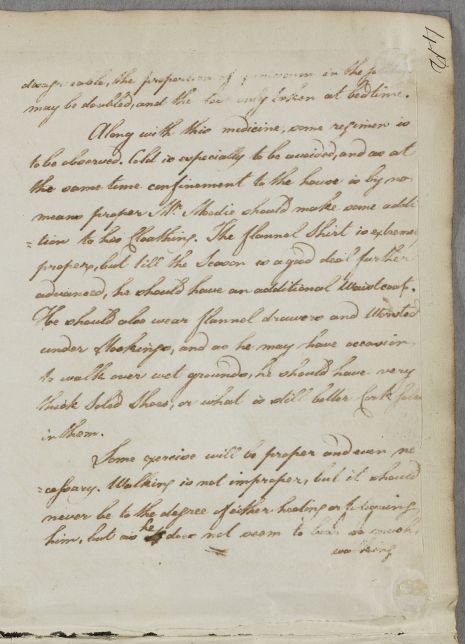 disagreeable, the proportion of in the
may be doubled, and the only taken at bedtime.
Along with this medicine, some regimen is
to be observed. Cold is especially to be avoided, and as at
the same time confinement to the house is by no
means proper Mr. Modie should make some addi
=tion to his cloathing. The flannel Shirt is extreme
proper, but till the Season is a good deal further
advanced, he should have an additional Waistcoat.
He should also wear flannel drawers and Worsted
under Stockings, and as he may have occasion
to walk over wet grounds, he should have very
thick Soled Shoes, or what is still better Cork Soles
in them.
Some exercise will be proper and even ne
=cessary. Walking is not improper, but it should
never be to the degree of either heating or fatiguing
him, but as he does not seem to bear so much
walking